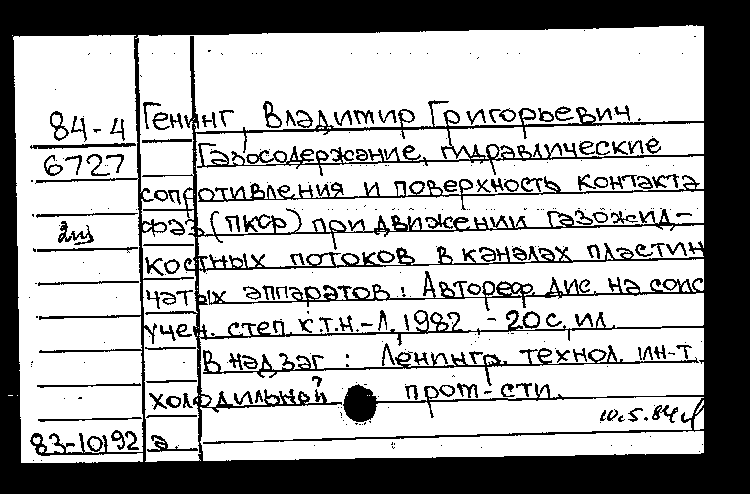 84-4 Генинг, Владимир Григорьевич.
6727 Газосодержание, гидравлические
сопротивления и поверхность контакта
фаз (ПКФ) при движении газожид-
костных потоков в каналах пластин
чатых аппаратов: Автореф. дис. на соис
учен. степ. к.т.н.-Л., 1982, -20 с, ил.
В надзаг: Ленингр. технол. ин-т
холодильной пром-сти.
10.5.84
83-10192 э.